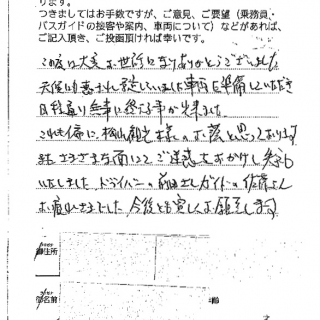 ります。
つきましてはお手数ですが、ご意見、ご要望（乗務員・
バスガイドの接客や案内、車両について）などがあれば、
ご記入頂き、ご投函頂ければ幸いです。
この度は大変お世話になりありがとうございました。
天候にも恵まれ 車両を準備していただき
日程通り無事に終える事が出来ました。
これも偏に、観光様のお蔭と思っております
又、さまざまな面にてご迷惑をおかけし失礼
いたしました。ドライバーの前田さんガイドの佐藤さん
お疲れさまでした。今後とも宜しくお願いします
御住所
御名前